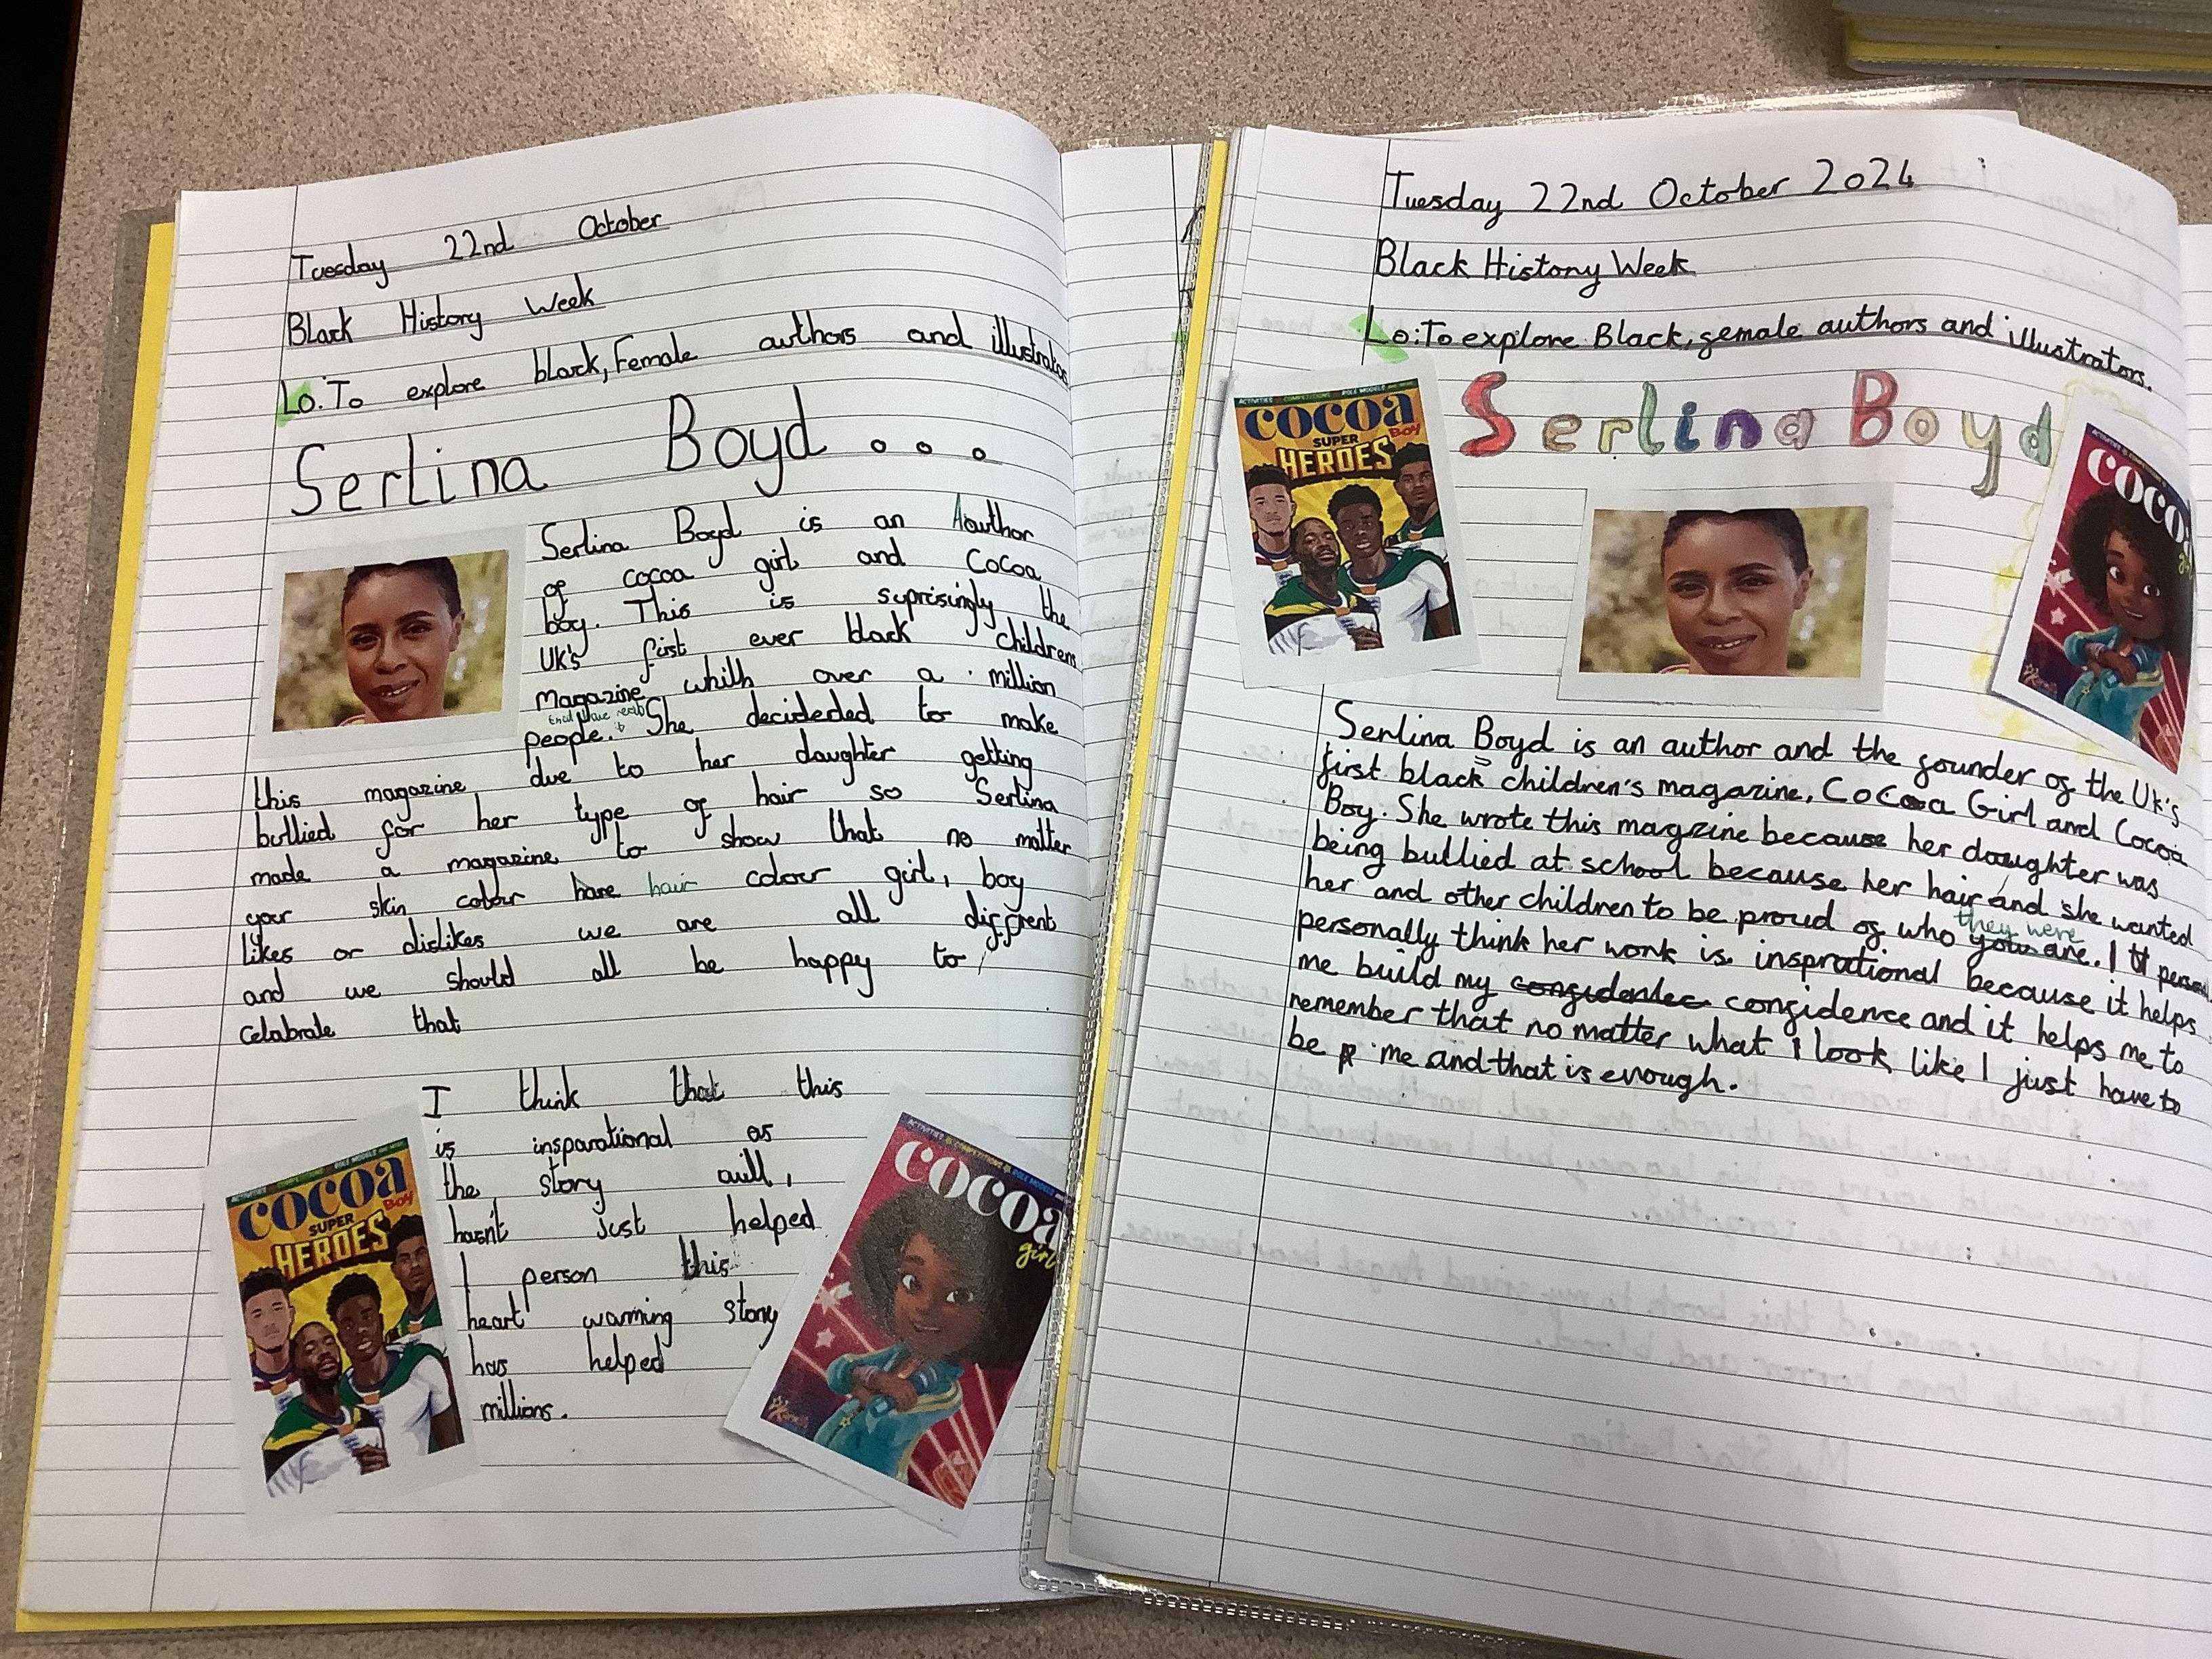 Tuesday 22nd October
Black History Week
Lo: To explore black, Female authors and illustrators
Serlina Boyd ...
Serlina Boyd is an Aauthor
of cocoa girl and Cocoa
boy. This is suprisingly the
UK's first ever black childrens
Magazine whith over a million
people. She decideded to make
this magazine due to her daughter getting
bullied for her type of hair so Serlina
made a magazine to show that no matter
your skin colour hare hair colour girl, boy
likes or dislikes we are all diffrent
and we should all be happy to
celabrate that
I think that this
is insparational as
the story
hasn't just helped
1 person this
heart warming story
has helped
millions.
ACTIVITIES COMPETITIONS ROLE MODELS
COCOA
BOY
SUPER
HEROES
ACTIVITIES COMPETITIONS ROLE MODELS
COCOA
girl
Tuesday 22nd October 2024
Black History Week
Lo: To explore Black, female authors and illustrators.
Serlina Boyd
ACTIVITIES COMPETITIONS ROLE MODELS
COCOA
BOY
SUPER
HEROES
ACTIVITIES
COCO
Serlina Boyd is an author and the founder of the Uk's
first black children's magazine, Cococa Girl and Cocoa
Boy. She wrote this magzine because her daughter was
being bullied at school because her hair and she wanted
her and other children to be proud of who they were you are. I
personally think her work is insprational because it helps
me build my confidence and it helps me to
remember that no matter what I look like I just have to
be me and that is enough.